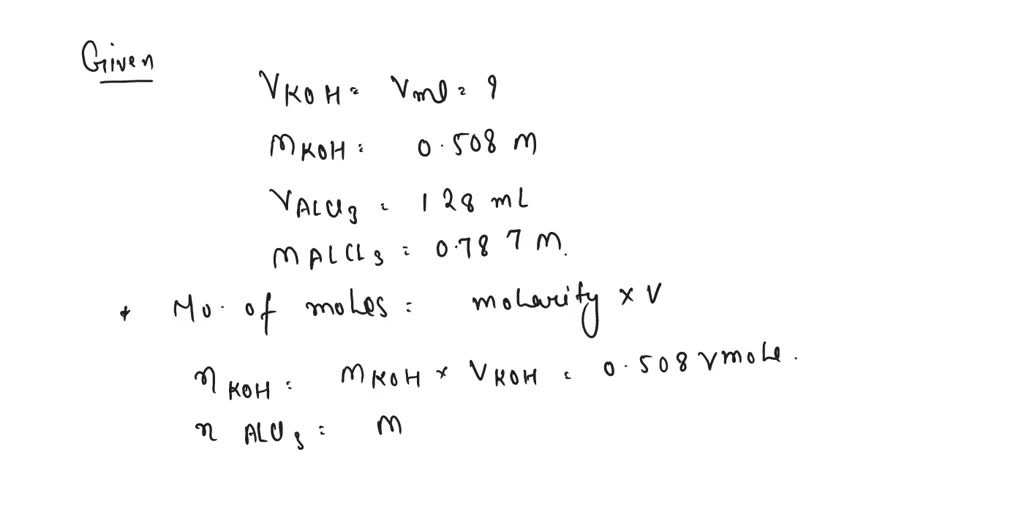 Given
V KOH = Vml = ?
M KOH = 0.508 M
V AlCl3 = 128 mL
M AlCl3 = 0.787 M.
* No. of moles = molarity × V
n KOH = M KOH × V KOH = 0.508 V mole.
n AlCl3 = M